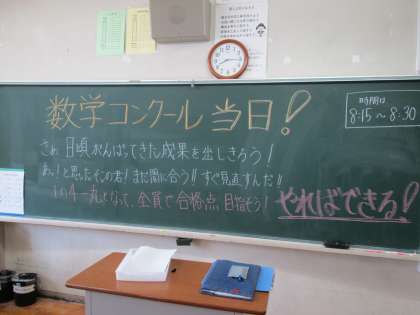 数学コンクール当日!
時間は
8:15～8:30
さぁ、日頃がんばってきた成果を出しきろう!
あっ!と思ったその君!まだ間に合う!!すぐ見直すんだ!!
1の4一丸となって、全員で合格点目指そう!
やればできる!